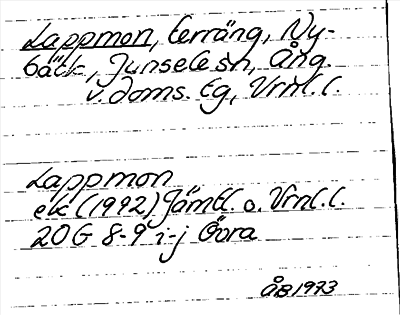 Lappmon, terräng, Ny-
bäck, Junsele sn, Ång.
v. doms. tg, Vrnl. l.
Lappmon
ek (1992) Jämtl. o. Vrnl. l.
20 G 8-9 i-j Övra
ÅB 1973